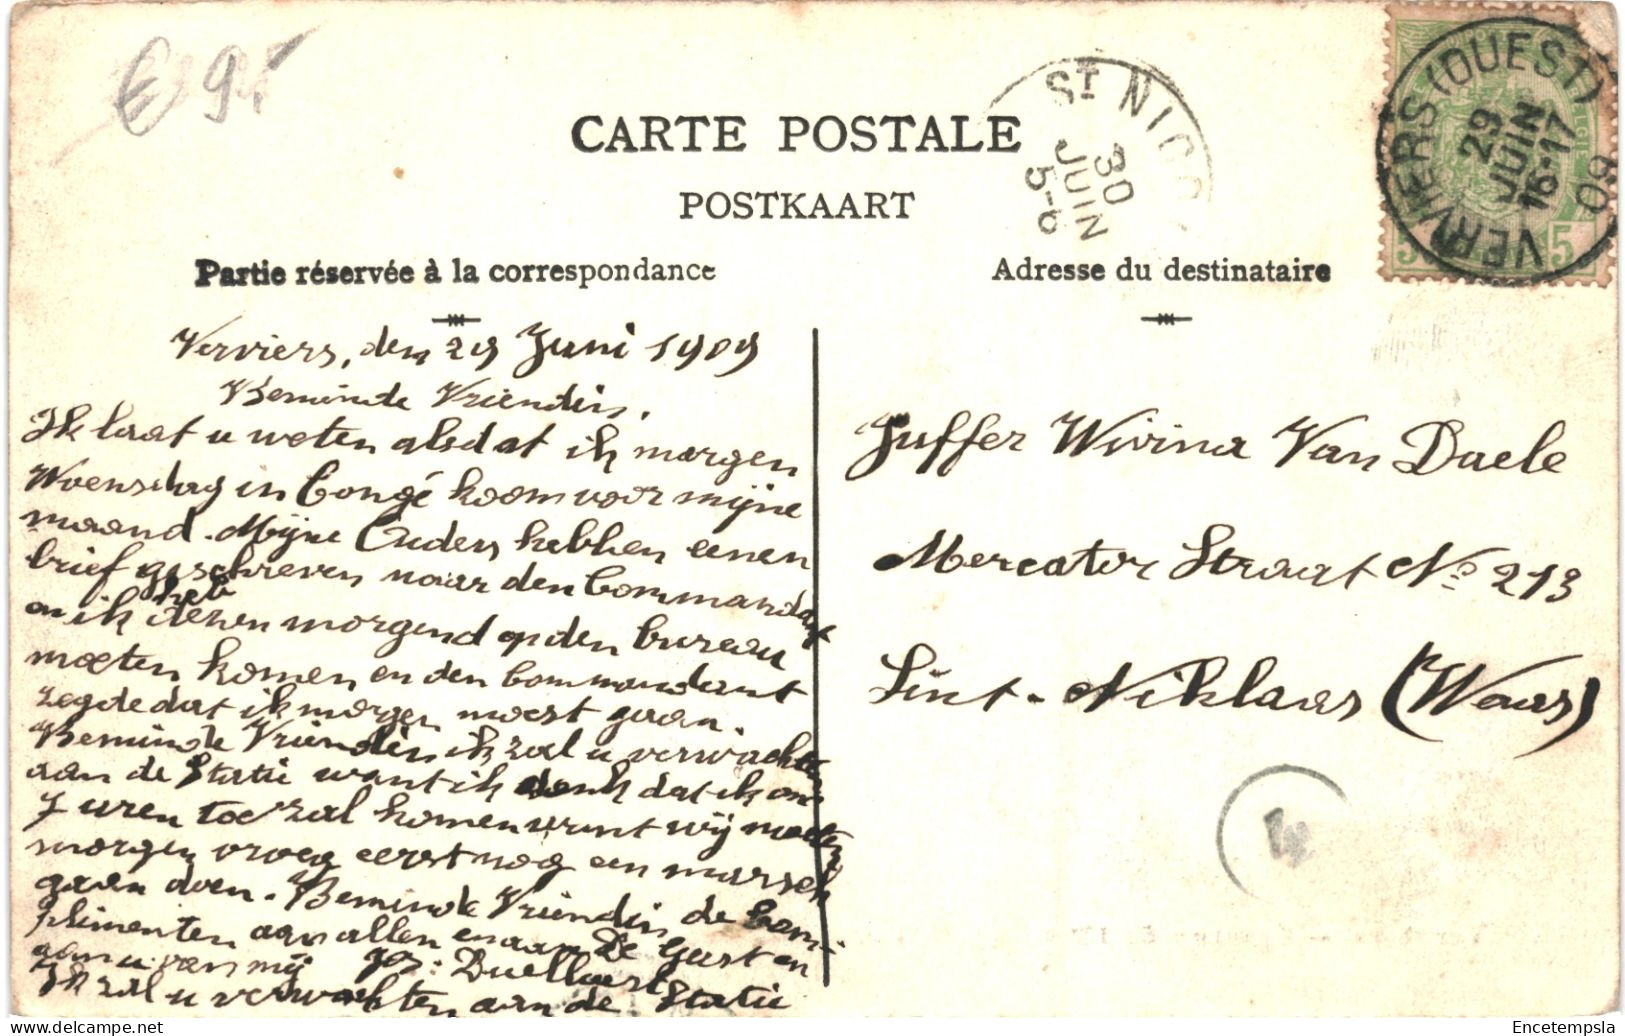 € 9.-
CARTE POSTALE
POSTKAART
Partie réservée à la correspondance
Adresse du destinataire
ST NICO
30
JUIN
5-6
VERVIERS (OUEST)
29
JUIN
16-17
09
5 5
Verviers, den 29 Juni 1909
Beminde Vriendin.
Ik laat u weten alsdat ik morgen
Woensdag in Congé koom voor mijne
maand. Mijne Ouders hebben eenen
brief geschreven naar den Commandant
en ik heb dezen morgend op den bureau
moeten komen en den Commandant
zegde dat ik morgen moest gaan.
Beminde Vriendin ik zal u verwachten
aan de Statie want ik denk dat ik om
7 uren toe zal komen want wij moeten
morgen vroeg eerst nog een marsch
gaan doen. Beminde Vriendin de Com-
plimenten aan allen en aan De Gust en
aan u van mij Jos:
Ik zal u verwachten aan de Statie
Juffer Wivina Van Daele
Mercator Straat No 213
Sint-Niklaas (Waas)
4
Encetempsla